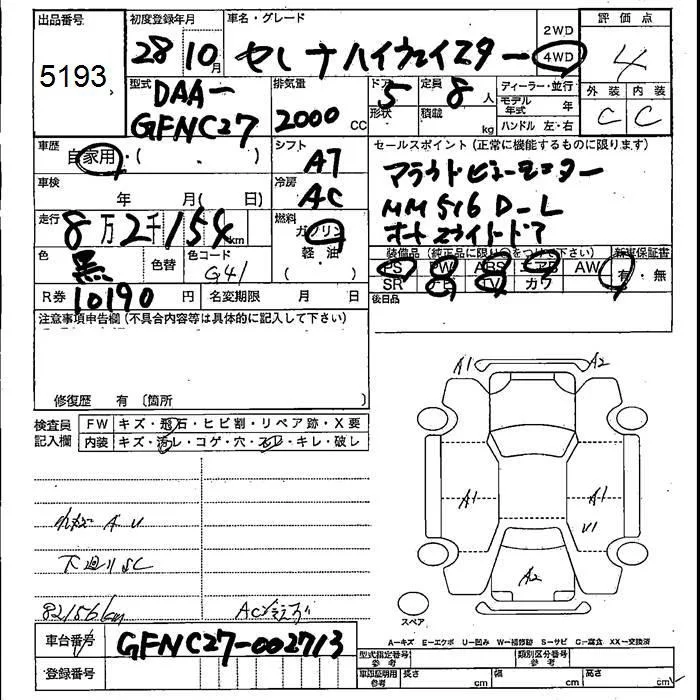 出品番号
5193
初度登録年月
28 10月
車名・グレード
セレナ ハイウェイスター
2WD
4WD
評価点
4
外装 内装
C C
型式
DAA-
GFNC27
排気量
2000 CC
ドア
5
形状
定員
8 人
積載
kg
ディーラー・並行
モデル年式 年
ハンドル 左・右
車歴
自家用・( ・ )
シフト
AT
セールスポイント(正常に機能するものに限ります)
アラウドビューモニター
MM516D-L
オートスライドドア
車検
年 月( 日)
冷房
AC
走行
8万2千154km
燃料
ガソリン
軽・油
色
黒
色替
色コード
G41
装備品(純正品に限り○をつけて下さい)
PS PW ABS エアB AW
SR ナビ TV カワ
新車保証書
有・無
R券
10190 円
名変期限 月 日
後日品
注意事項申告欄(不具合内容等は具体的に記入して下さい)
修復歴 有〔箇所 〕
検査員記入欄
FW キズ・飛石・ヒビ割・リペア跡・X要
内装 キズ・汚レ・コゲ・穴・スレ・キレ・破レ
A U
下廻りSC
82156km
A1 A2
A1 A1
U1
A2
スペア
A-キズ E-エクボ U-凹み W-補修跡 S-サビ C-腐食 XX-交換済
車台番号
GFNC27-002713
登録番号
型式指定番号 参考
類別区分番号 参考
車庫証明用 参考
長さ cm
幅 cm
高さ cm